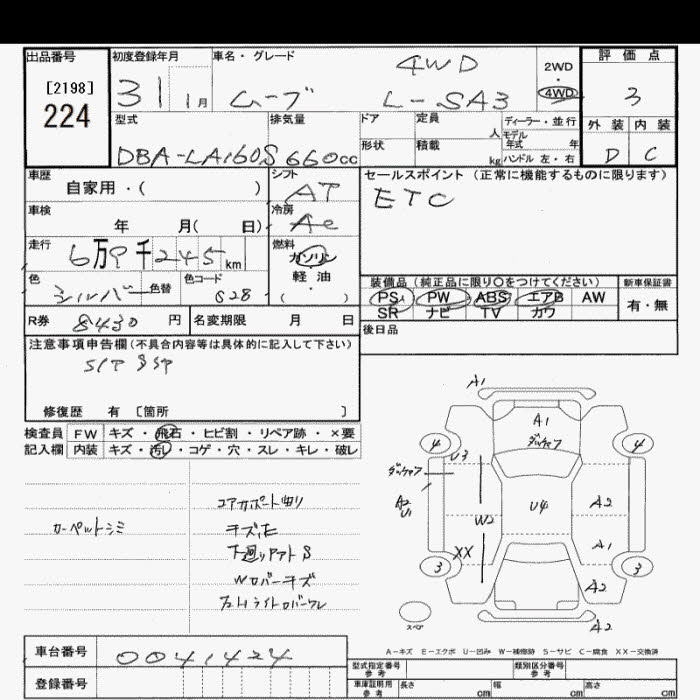 出品番号 初度登録年月 車名・グレード 4WD 2WD ・ 4WD 評価点
[2198] 224 31 1月 ムーブ L-SA3 3
型式 排気量 ドア 定員 人 ディーラー・並行 外装 内装
モデル年式 年
DBA-LA160S 660cc 形状 積載 kg ハンドル 左・右 D C
車歴 シフト セールスポイント (正常に機能するものに限ります)
自家用・( ) AT ETC
車検 冷房
年 月( 日) Ac
走行 燃料
6万9千245km ガソリン
色 色替 色コード 軽・油
シルバー S28 ( )
装備品 (純正品に限り○をつけてください) 新車保証書
PS PW ABS エアB AW 有・無
SR ナビ TV カワ
R券 8430円 名変期限 月 日 後日品
注意事項申告欄(不具合内容等は具体的に記入して下さい)
修復歴 有 [箇所 ]
検査員 FW キズ・飛石・ヒビ割・リペア跡・×要
記入欄 内装 キズ・汚レ・コゲ・穴・スレ・キレ・破レ
A1
A1
4 4
U3
A2
U1
U4 A2
W2
A1
XX
3 3
A2
スペア
A2
カーペットシミ
コアサポート曲り
キズ凹
下廻りサビS
Wロバーキズ
A-キズ E-エクボ U-凹み W-補修跡 S-サビ C-腐食 XX-交換済
車台番号 0041424
登録番号
型式指定番号 参考 類別区分番号 参考
車庫証明用 参考 長さ cm 幅 cm 高さ cm